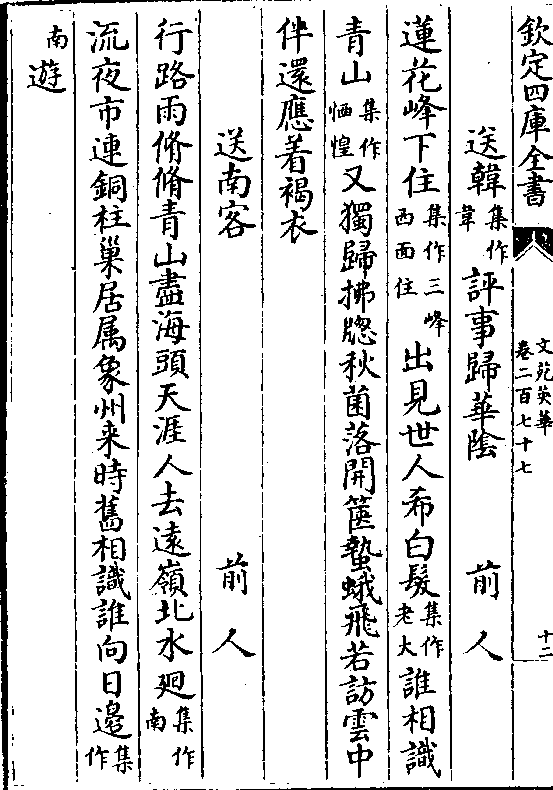 欽定四庫全書
文苑英華
卷二百七十七
十二
送韓集作韋評事歸華陰 前人
蓮花峰下住集作三峰西面住出見世人希白髮集作老大誰相識
青山集作恓惶又獨歸拂牕秋菌落開篋蟄蛾飛若訪雲中
伴還應着褐衣
送南客 前人
行路雨脩脩青山盡海頭天涯人去遠嶺北水廻集作南
流夜市連銅柱巢居属象州来時舊相識誰向日邊集作
南遊